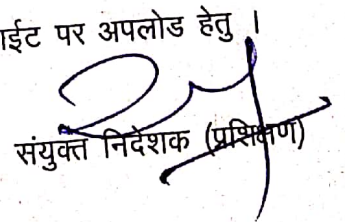 ाईट पर अपलोड हेतु ।
संयुक्त निदेशक (प्रशिक्षण)